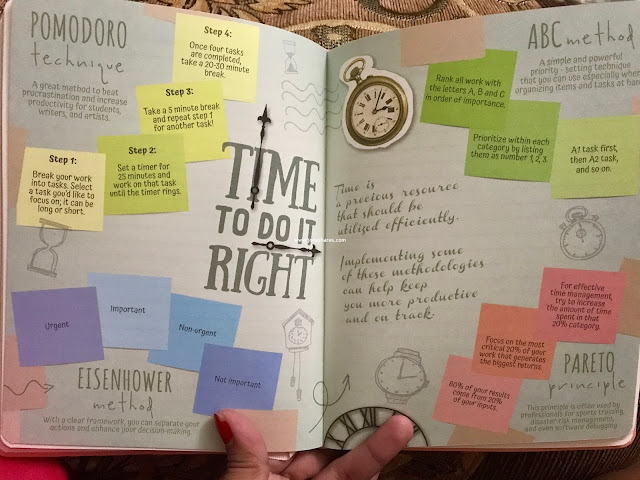 POMODORO
technique
A great method to beat
procrastination and increase
productivity for students,
writers, and artists.
Step 1:
Break your work
into tasks. Select
a task you'd like to
focus on; it can be
long or short.
Step 2:
Set a timer for
25 minutes and
work on that task
until the timer rings.
Step 3:
Take a 5 minute break
and repeat step 1
for another task!
Step 4:
Once four tasks
are completed,
take a 20-30 minute
break.
TIME
TO DO IT
RIGHT
Urgent
Important
Non-urgent
Not important
EISENHOWER
method
With a clear framework, you can separate your
actions and enhance your decision-making.
ABC method
A simple and powerful
priority - setting technique
that you can use especially when
organizing items and tasks at hand
Rank all work with
the letters A, B and C
in order of importance.
Prioritize within each
category by listing
them as number 1, 2, 3.
A1 task first,
then A2 task,
and so on.
Time is
a precious resource
that should be
utilized efficiently.
Implementing some
of these methodologies
can help keep
you more productive
and on track
For effective
time management,
try to increase
the amount of time
spent in that
20% category.
Focus on the most
critical 20% of your
work that generates
the biggest returns.
80% of your results
come from 20%
of your inputs.
PARETO
principle
This principle is often used by
professionals for sports training,
disaster risk management,
and even software debugging.